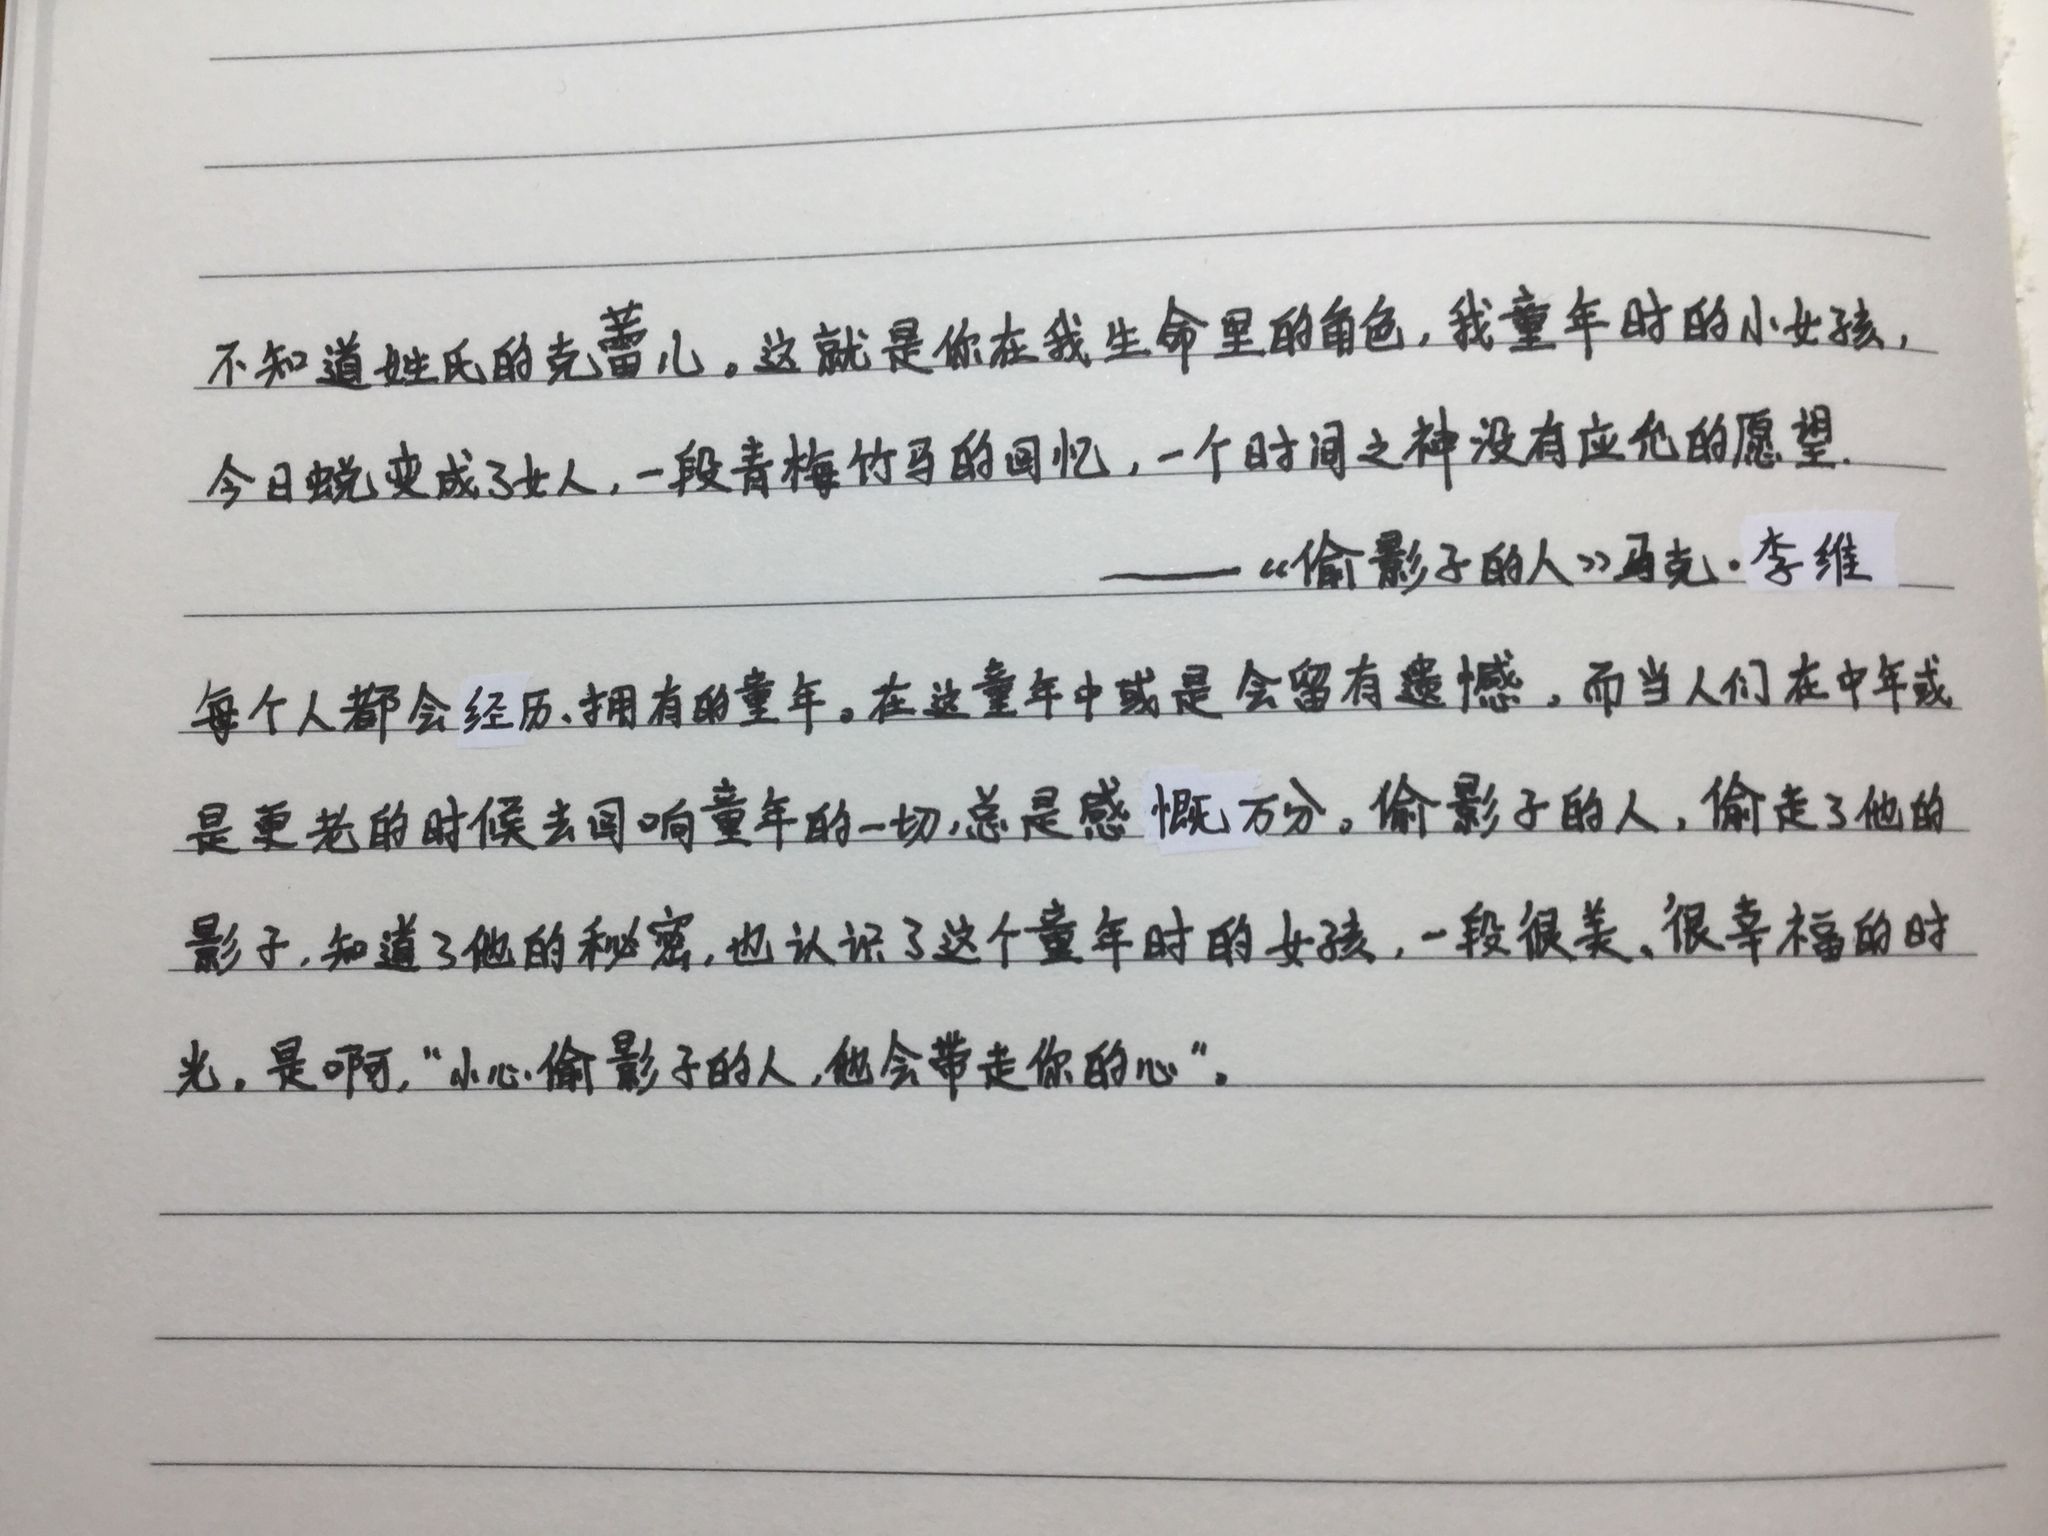 不知道姓氏的克蕾儿。这就是你在我生命里的角色，我童年时的小女孩，
今日蜕变成了女人，一段青梅竹马的回忆，一个时间之神没有应允的愿望.
——《偷影子的人》马克·李维
每个人都会经历、拥有的童年。在这童年中或是会留有遗憾，而当人们在中年或
是更老的时候去回响童年的一切，总是感慨万分。偷影子的人，偷走了他的
影子，知道了他的秘密，也认识了这个童年时的女孩，一段很美、很幸福的时
光。是啊，“小心偷影子的人，他会带走你的心“。